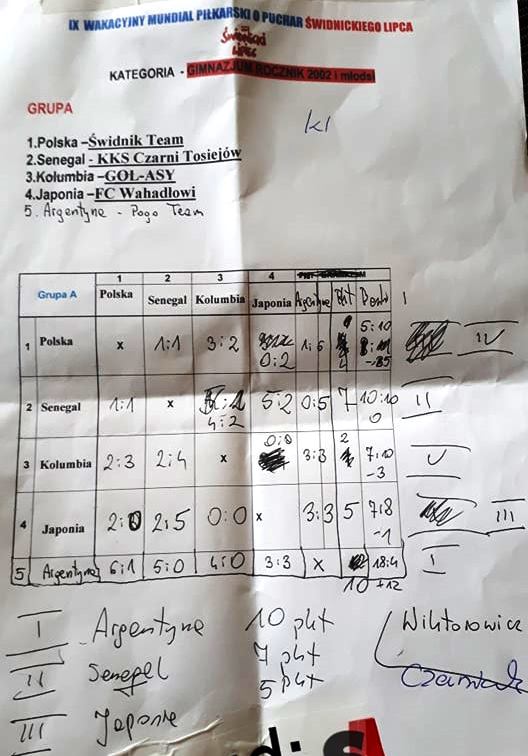 IX WAKACYJNY MUNDIAL PIŁKARSKI O PUCHAR ŚWIDNICKIEGO LIPCA
Świdnicki
Lipiec
KATEGORIA - GIMNAZJUM ROCZNIK 2002 i młodsi
GRUPA
kl
1.Polska –Świdnik Team
2.Senegal - KKS Czarni Tosiejów
3.Kolumbia –GOL-ASY
4.Japonia –FC Wahadlowi
5. Argentyna - Pogo Team
1 2 3 4
Grupa A Polska Senegal Kolumbia Japonia Argentyna Pkt
1 Polska x 1:1 3:2 0:2 1:6 5:10 IV
2 Senegal 1:1 x 4:2 5:2 0:5 7 10:10 0 II
3 Kolumbia 2:3 2:4 x 0:0 3:3 2 7:10 -3 V
4 Japonia 2:0 2:5 0:0 x 3:3 5 7:8 -1 III
5 Argentyna 6:1 5:0 4:0 3:3 x 10 18:4 +12 I
I Argentyna 10 pkt Wiktorowicz
II Senegal 7 pkt
III Japonia 5 pkt